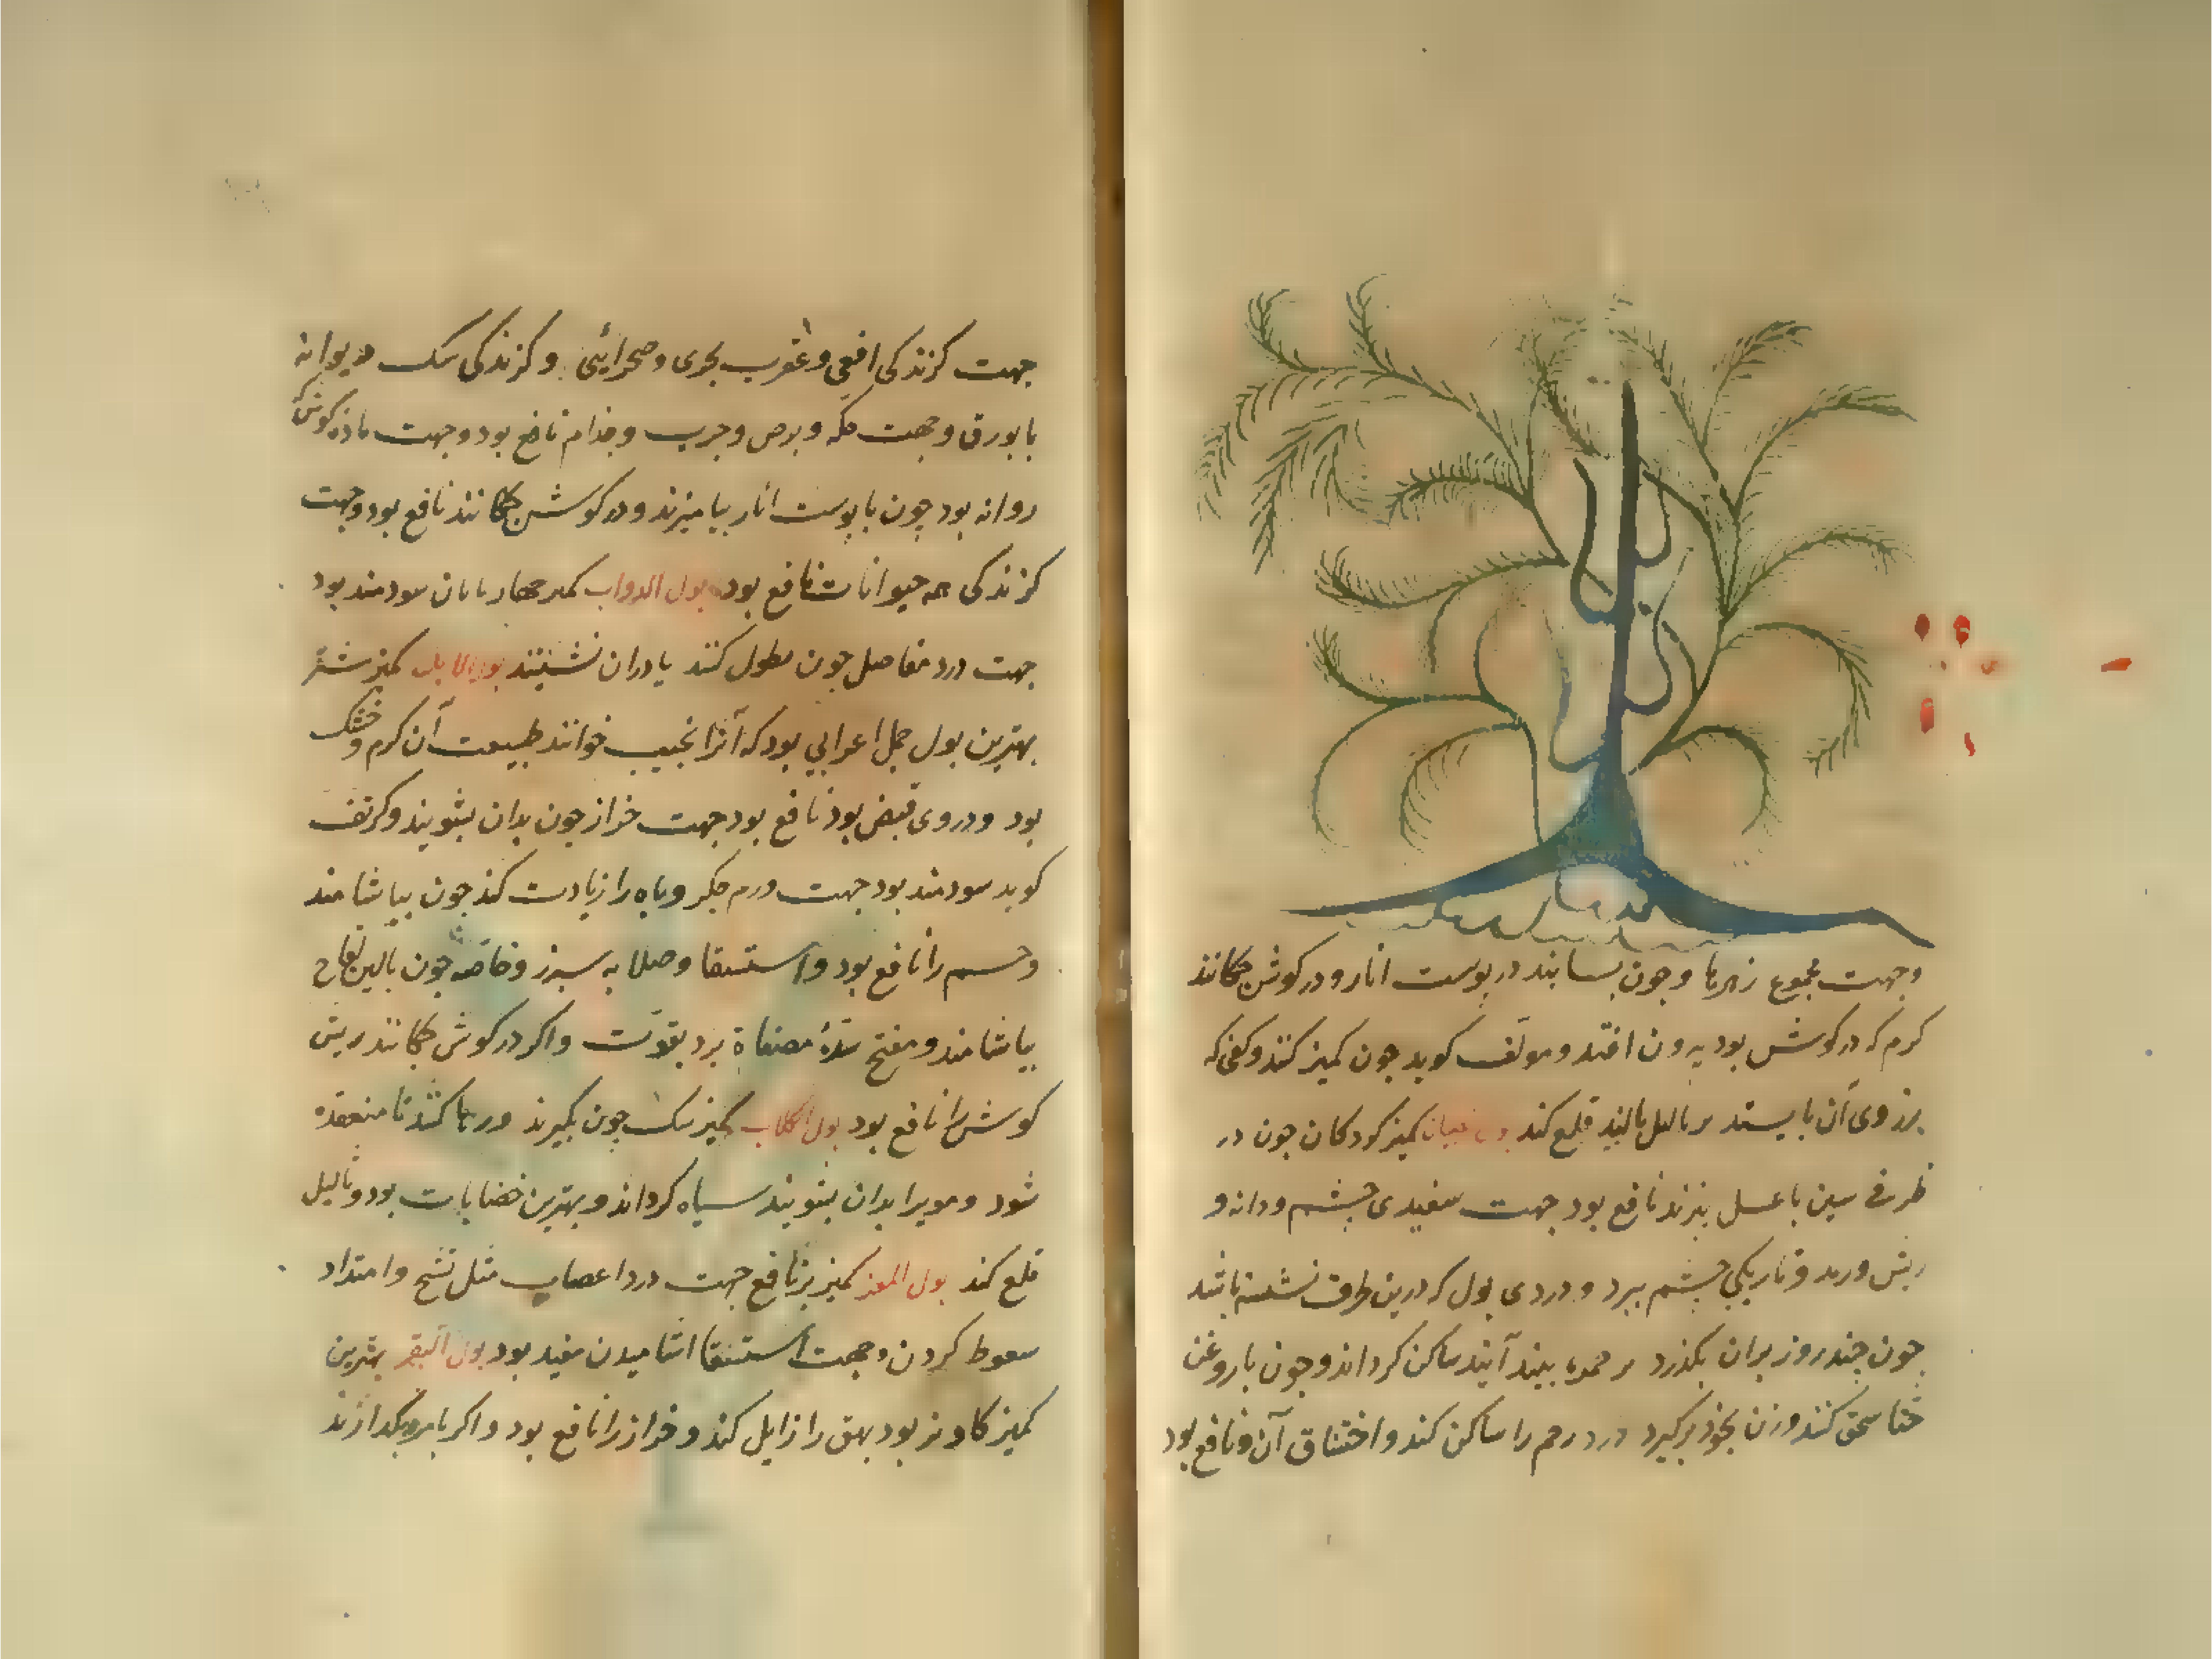 وجهت مجموع زهرها وجون بسایند در پوست انار ودر کوش جکانند
کرم که در کوش بود بیرون افتد ومولف کوید جون کمیز کنند وکفی که
برزوی آن بایستد بر ثالیل مالند قلع کند کمیز کودکان جون در
ظرفی مسین با عسل بپزند نافع بود جهت سفیدی جشم ودانه و
ریش ورمد وتاریکی جشم ببرد ودردی بول که درین ظرف نشسته باشد
جون جند روز بران بکذرد بر حمره بیند آیند ساکن کرداند وجون با روغن
حنا سحق کنند وزن بخوذ برکیرد درد رحم را ساکن کند واختناق آن ونافع بود
جهت کزندکی افعی وعقرب بحری وصحرایی وکزندکی سک دیوانه
با بورق وجهت حکه وبرص وجرب وجذام نافع بود وجهت ماده کوش کی
روانه بود جون با پوست انار بیامیزند ودر کوش جکانند نافع بود وجهت
کزندکی همه حیوانات نافع بود بول الدواب کمیز جهارپایان سودمند بود
جهت درد مفاصل جون نطول کنند یا دران نشینند بول الابل کمیز شتر
بهترین بول جمل اعرابی بود که آنرا نجیب خوانند طبیعت آن کرم وخشک
بود ودروی قبض بود نافع بود جهت حزاز جون بدان بشویند وکرنف
کوید سودمند بود جهت ورم جکر وباه را زیادت کند جون بیاشامند
وسم را نافع بود واستسقا وصلابه سپرز وخاصه جون بالبن لقاح
بیاشامند ومفتح سدهٔ مصفاة بود بقوّت واکر در کوش جکانند ریش
کوش را نافع بود بول الکلاب کمیز سک جون بکیرند ورها کنند تا منعقده
شود ومویرا بدان بشویند سیاه کرداند وبهترین خضابات بود وثالیل
قلع کند بول المعز کمیز بز نافع جهت درد اعصاب مثل تشنج وامتداد
سعوط کردن وجهت استسقا اشامیدن مفید بود بول البقر بهترین
کمیز کاو نر بود بهق را زایل کند وحزاز را نافع بود واکر با مر بکدازند